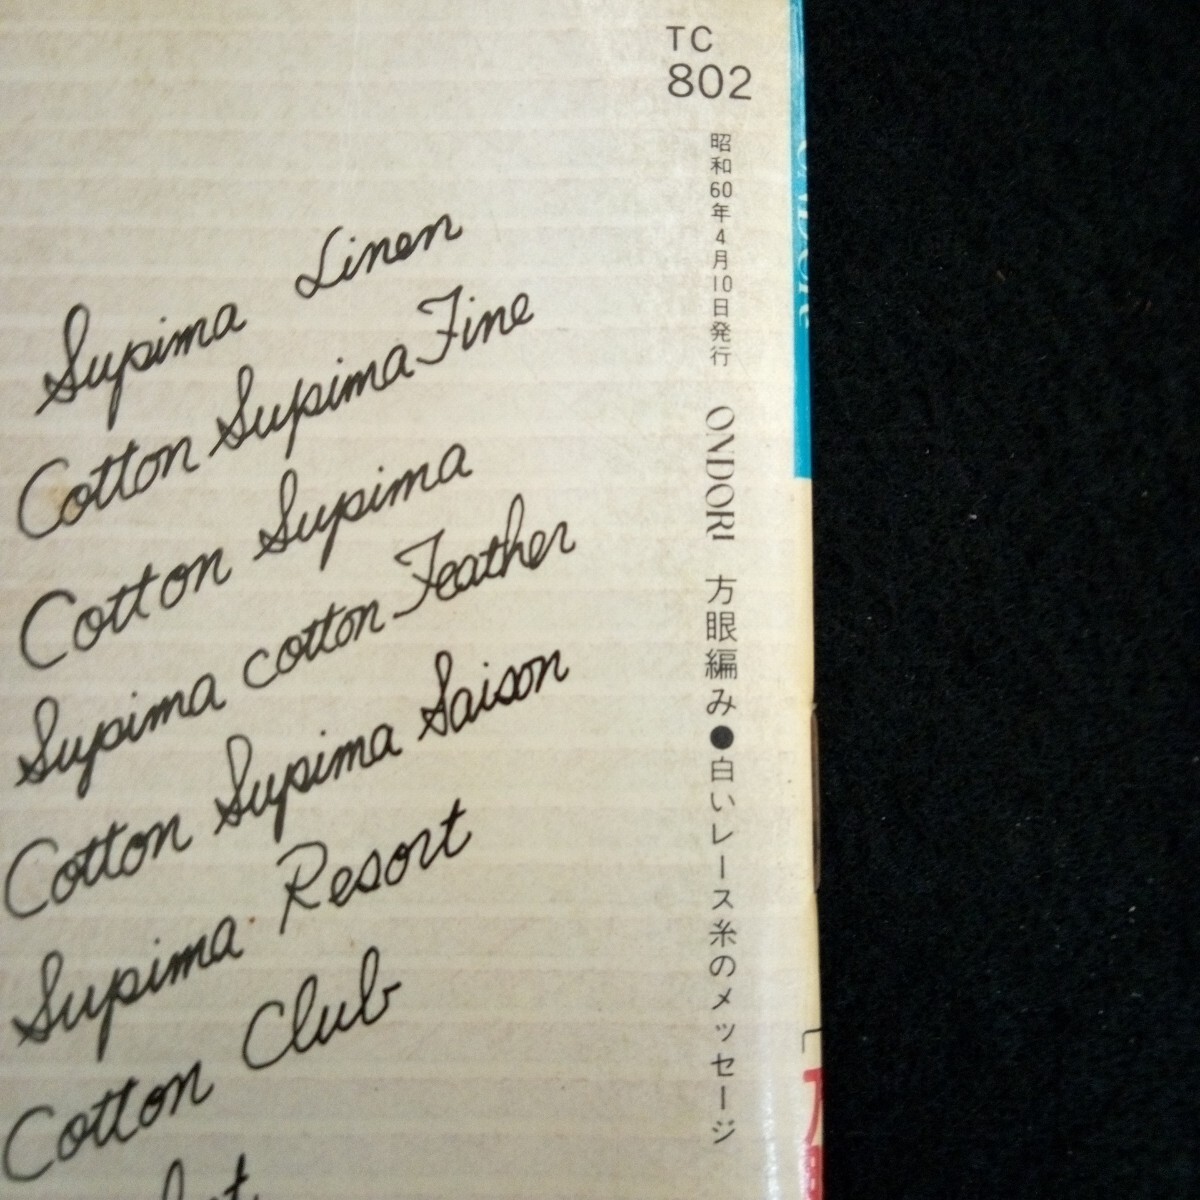 TC
802
昭和60年4月10日発行 ONDORI 方眼編み●白いレース糸のメッセージ
Supima Linen
Cotton Supima Fine
Cotton Supima
Supima cotton Feather
Cotton Supima Saison
Supima Resort
Cotton Club